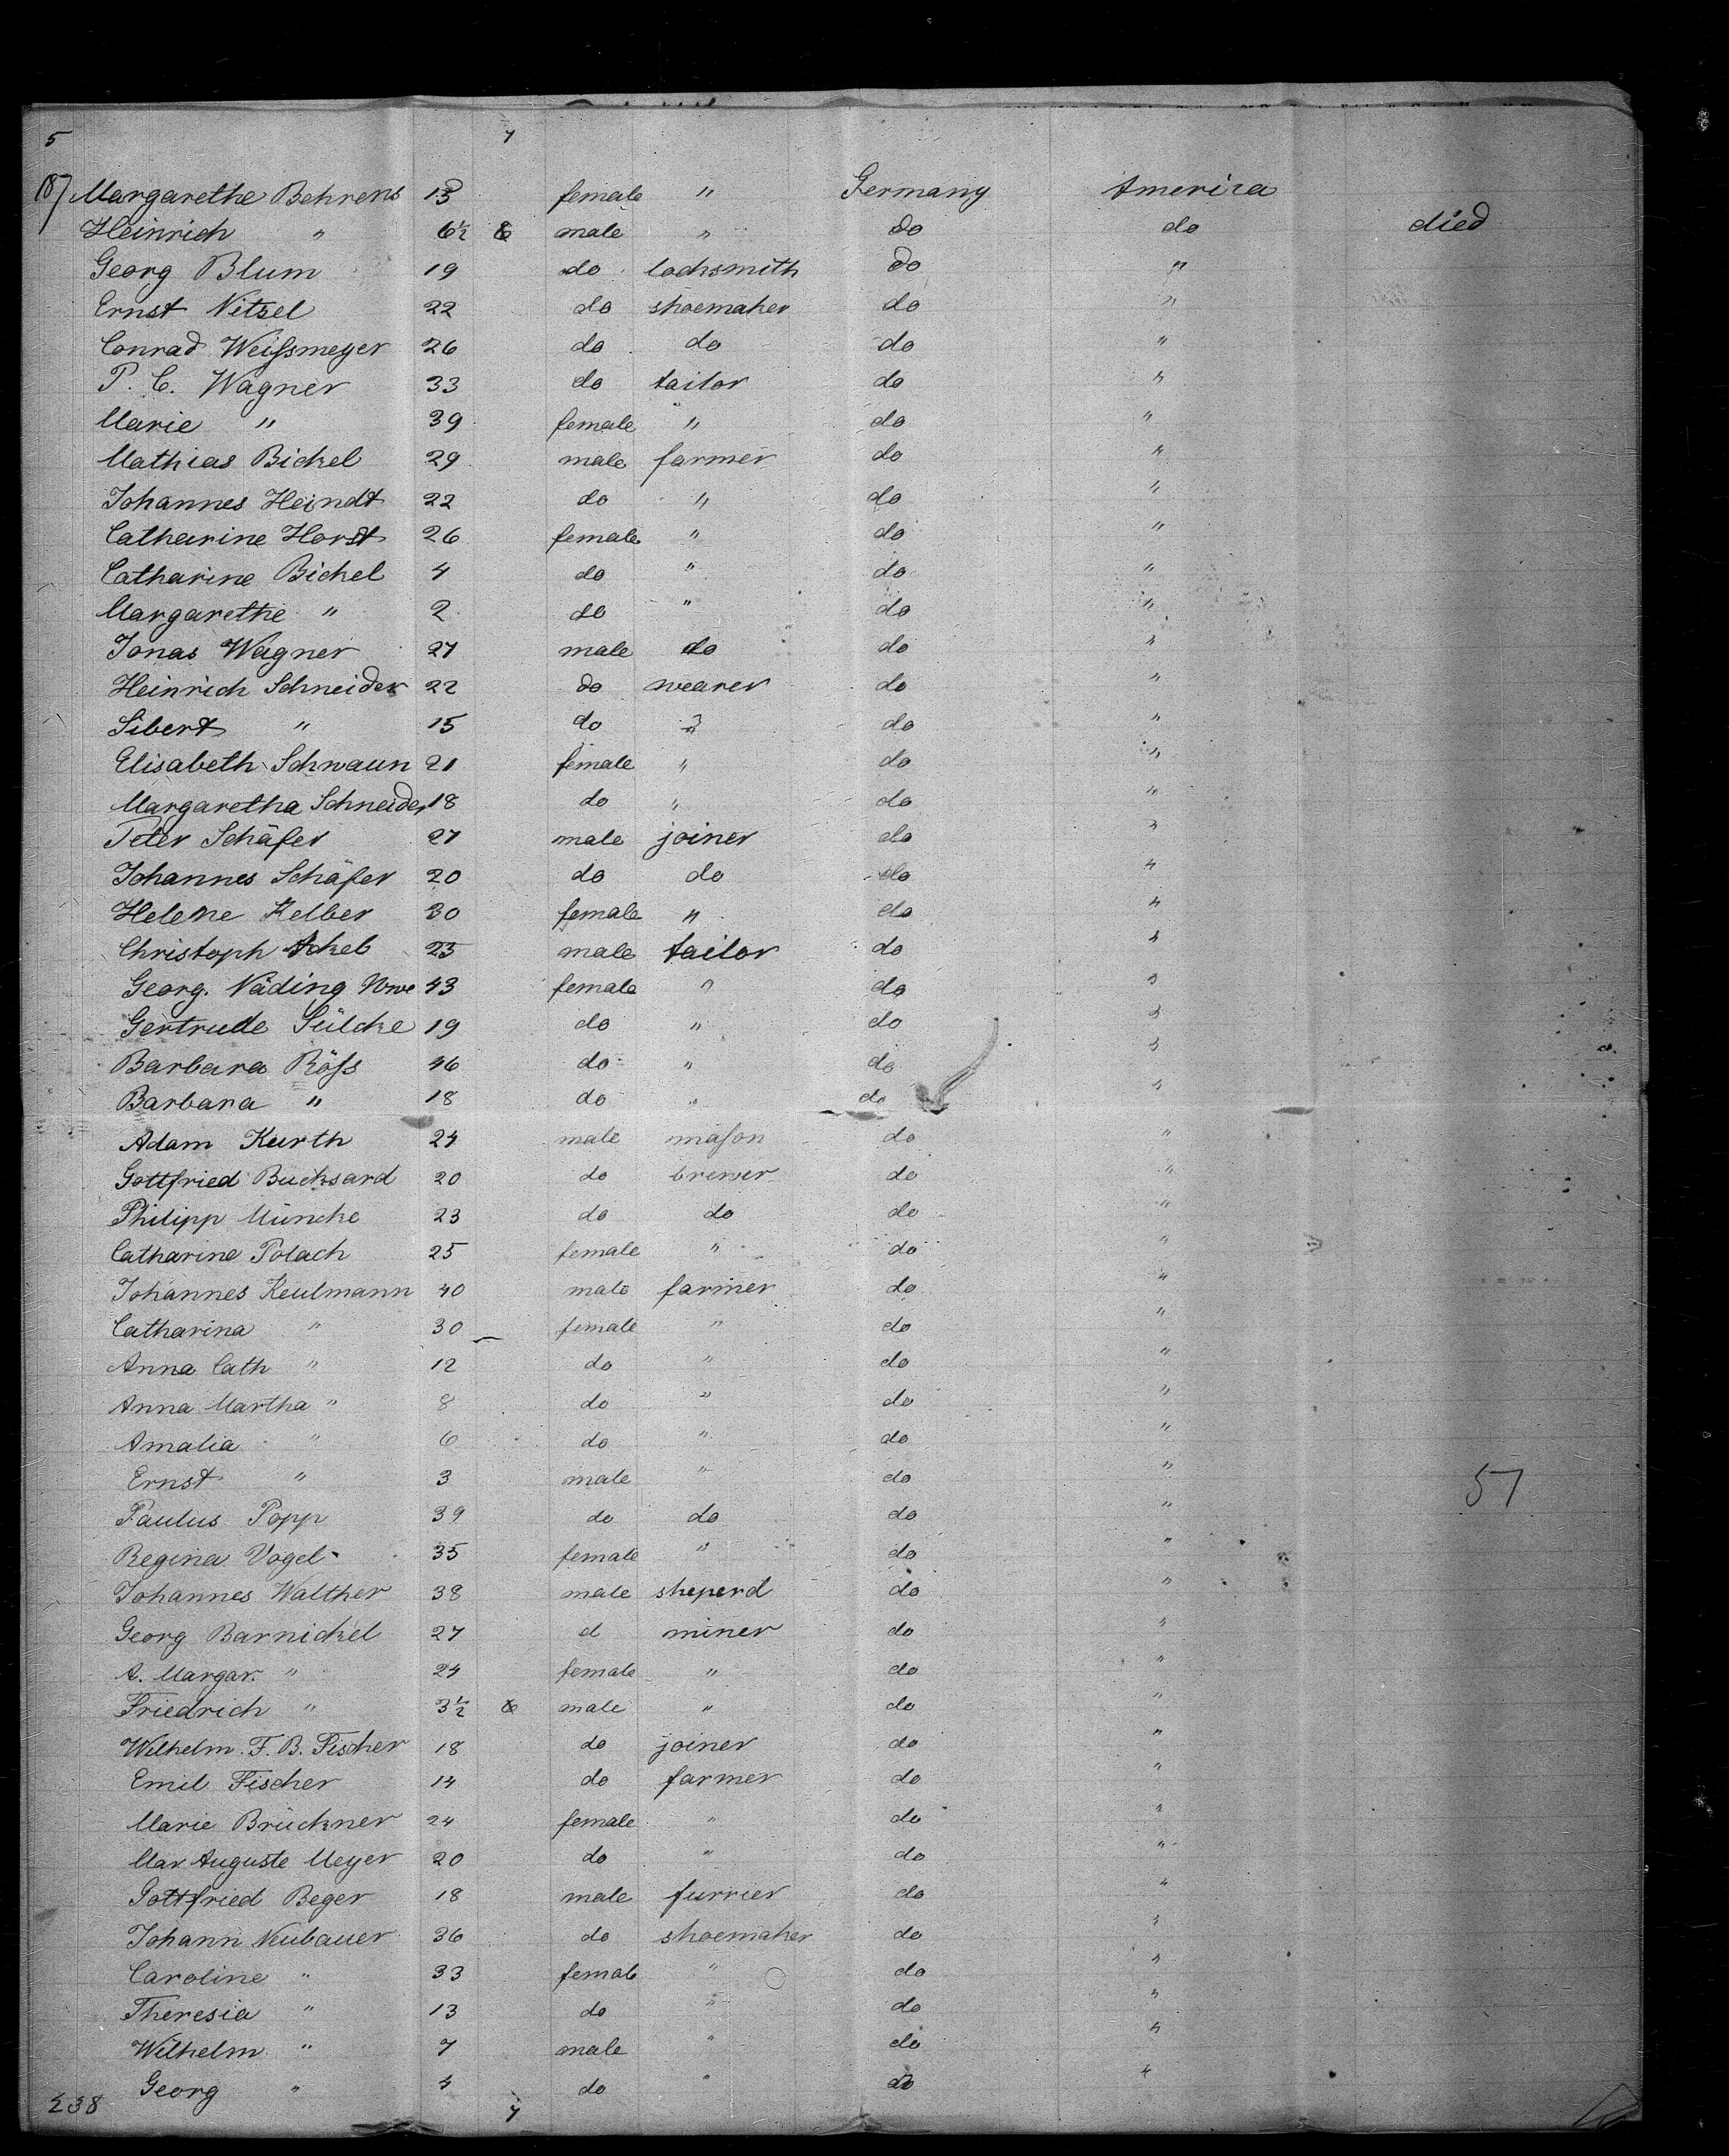 5 7
187 Margarethe Behrens 13 female " Germany America
Heinrich " 6½ 6 male " do do died
Georg Blum 19 do locksmith do "
Ernst Nitzel 22 do shoemaker do "
Conrad Weissmeyer 26 do do do "
P. C. Wagner 33 do tailor do "
Marie " 39 female " do "
Mathias Bickel 29 male farmer do "
Johannes Heindt 22 do " do "
Catharine Horst 26 female " do "
Catharine Bickel 4 do " do "
Margarethe " 2 do " do "
Jonas Wagner 27 male do do "
Heinrich Schneider 22 do weaver do "
Sibert " 15 do " do "
Elisabeth Schwaun 21 female " do "
Margaretha Schneider 18 do " do "
Peter Schäfer 27 male joiner do "
Johannes Schäfer 20 do do do "
Helene Kelber 30 female " do "
Christoph 25 male tailor do "
Georg. Näding Wwe 43 female " do "
Gertrude Sülcke 19 do " do "
Barbara Röss 46 do " do "
Barbara " 18 do " do "
Adam Kurth 24 male mason do "
Gottfried Bucksard 20 do brewer do "
Philipp Müncke 23 do do do "
Catharine Polach 25 female " do "
Johannes Keulmann 40 male farmer do "
Catharina " 30 female " do "
Anna Cath " 12 do " do "
Anna Martha " 8 do " do "
Amalia " 6 do " do "
Ernst " 3 male " do "
57
Paulus Popp 39 do do do "
Regina Vogel 35 female " do "
Johannes Walther 38 male sheperd do "
Georg Barnickel 27 d miner do "
A. Margar. " 24 female " do "
Friedrich " 3½ 6 male " do "
Wilhelm. F. B. Fischer 18 do joiner do "
Emil Fischer 14 do farmer do "
Marie Brückner 24 female " do "
Mar Auguste Meyer 20 do " do "
Gottfried Beger 18 male furrier do "
Johann Neubauer 36 do shoemaker do "
Caroline " 33 female " do "
Theresia " 13 do " do "
Wilhelm " 7 male " do "
Georg " 4 do " do "
238 7